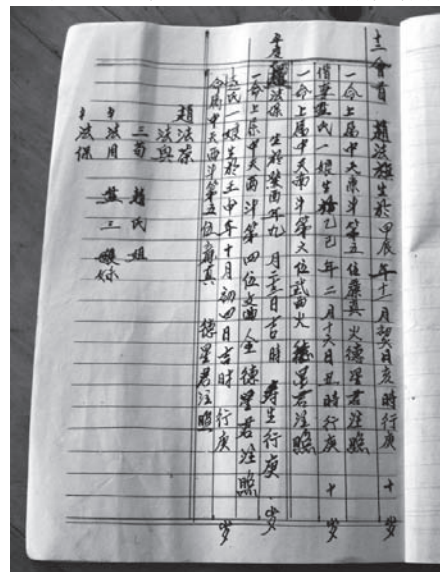 十二會首 趙法旌生於甲辰年十一月初六日亥時行庚 十 岁
一命上屬中天東斗第五位廉真火德星君注照
偕妻盘氏一娘生於乙巳年二月十六日丑時行庚 十 岁
一命上屬中天南斗第六位武曲火德星君注照
趙法保 生於癸酉年九月二十三日吉時 壽生行庚 岁
一命上屬中天西斗第四位文曲全德星君注照
氏一娘生於壬申年十月初四日吉時 行庚 岁
命屬中天西斗第五位廉真 德星君注照
趙法
法興
三 趙氏姐
法月 盘三嫂妹
法保